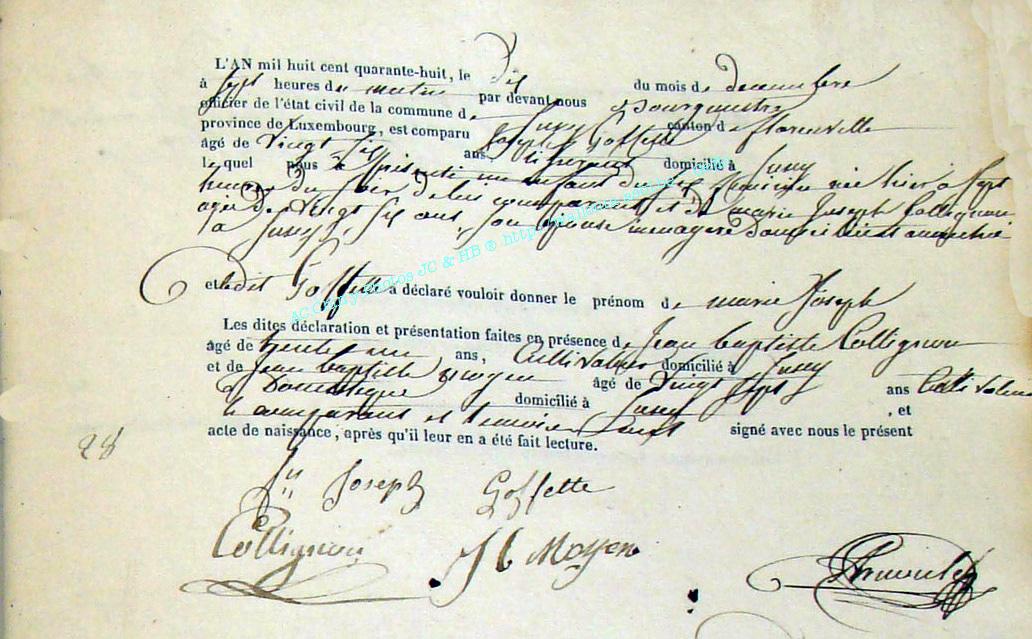 L'AN mil huit cent quarante-huit, le dix du mois de decembre
à sept heures du matin par devant nous Bourgmestre
officier de l'état civil de la commune de Jusey canton de florenville
province de Luxembourg, est comparu Joseph Goffette
âgé de vingt six ans domicilié à Jusey
le quel nous a présenté un enfant du sexe feminin née hier à sept
heures du soir de lui comparant et de marie Joseph Collignon
agée de vingt six ans son épouse menagere
à Jusey
et ledit Goffette a déclaré vouloir donner le prénom de marie Joseph
Les dites déclaration et présentation faites en présence de Jean baptiste Collignon
âgé de trente ans, Cultivateur domicilié à Jusey
et de Jean baptiste moyen âgé de vingt sept ans
domestique domicilié à Jusey, et
le comparant et temoins ont signé avec nous le présent
acte de naissance, après qu'il leur en a été fait lecture.
28
Joseph Goffette
Collignon J B Moyen
ACGaumy photos JC & HB ® http://